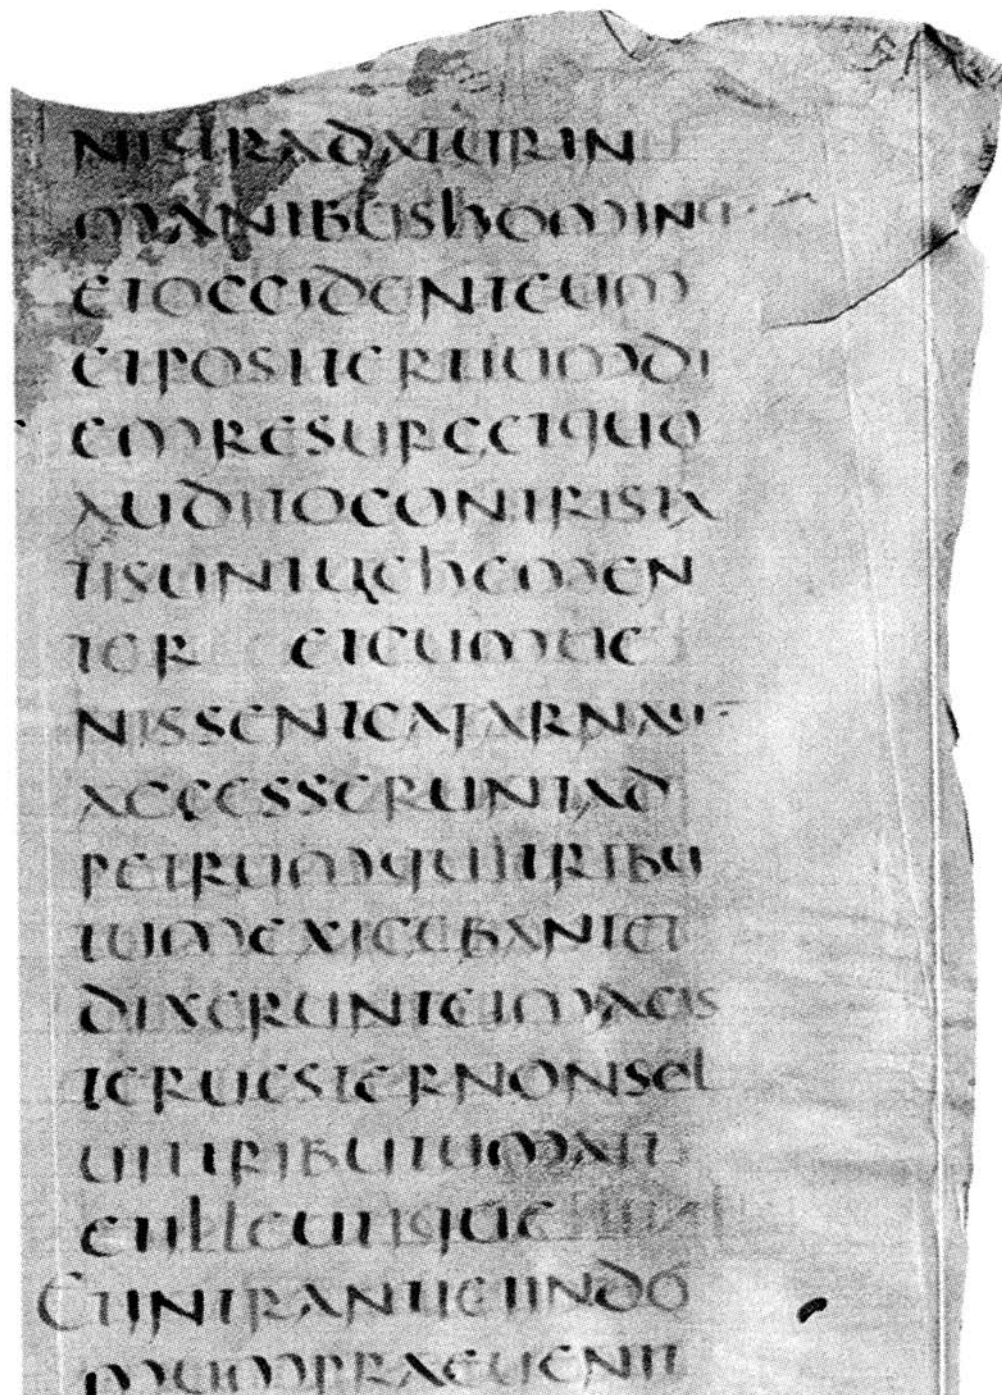 NIS IN
MANIBUSHOMINU
ETOCCIDENTEUM
ETPOSTTERTIUMDI
EMRESURGETQUO
AUDITOCONTRISTA
TISUNTUEHEMEN
TER ETCUMUE
NISSENTCAFARNAU
ACCESSERUNTAD
PETRUMQUITRIBU
TUMEXIGEBANTET
DIXERUNTEIMAGIS
TERUESTERNONSOL
UITTRIBUTUMAIT
EIILLEUTIQUE
ETINTRANTIEIINDO
MUMPRAEUENIT